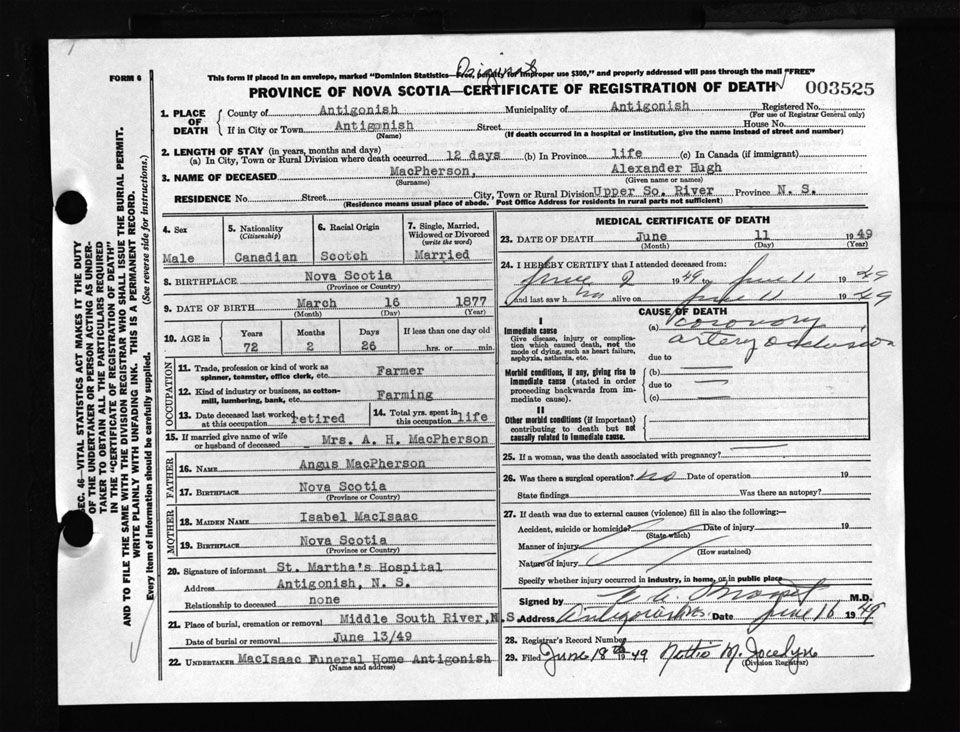 Original
FORM 6
This form if placed in an envelope, marked "Dominion Statistics—Free, penalty for improper use $300," and properly addressed will pass through the mail "FREE"
PROVINCE OF NOVA SCOTIA—CERTIFICATE OF REGISTRATION OF DEATH 003525
1. PLACE OF DEATH
County of Antigonish Municipality of Antigonish Registered No.
(For use of Registrar General only)
If in City or Town Antigonish Street House No.
(Name) (If death occurred in a hospital or institution, give the name instead of street and number)
2. LENGTH OF STAY (in years, months and days)
(a) In City, Town or Rural Division where death occurred 12 days (b) In Province life (c) In Canada (if immigrant)
3. NAME OF DECEASED MacPherson, Alexander Hugh
(Surname) (Given name or names)
RESIDENCE No. Street City, Town or Rural Division Upper So. River Province N. S.
(Residence means usual place of abode. Post Office Address for residents in rural parts not sufficient)
4. Sex
Male
5. Nationality
(Citizenship)
Canadian
6. Racial Origin
Scotch
7. Single, Married, Widowed or Divorced
(write the word)
Married
8. BIRTHPLACE Nova Scotia
(Province or Country)
9. DATE OF BIRTH March 16 1877
(Month) (Day) (Year)
10. AGE in
Years Months Days If less than one day old
72 2 26 hrs. or min.
OCCUPATION
11. Trade, profession or kind of work as
spinner, teamster, office clerk, etc. Farmer
12. Kind of industry or business, as cotton-
mill, lumbering, bank, etc. Farming
13. Date deceased last worked
at this occupation retired
14. Total yrs. spent in
this occupation life
15. If married give name of wife
or husband of deceased Mrs. A. H. MacPherson
FATHER
16. NAME Angus MacPherson
17. BIRTHPLACE Nova Scotia
(Province or Country)
MOTHER
18. MAIDEN NAME Isabel MacIsaac
19. BIRTHPLACE Nova Scotia
(Province or Country)
20. Signature of informant St. Martha's Hospital
Address Antigonish, N. S.
Relationship to deceased none
21. Place of burial, cremation or removal Middle South River, N.S.
Date of burial or removal June 13/49
22. UNDERTAKER MacIsaac Funeral Home Antigonish
(Name and address)
MEDICAL CERTIFICATE OF DEATH
23. DATE OF DEATH June 11 1949
(Month) (Day) (Year)
24. I HEREBY CERTIFY that I attended deceased from:
June 2 1949 to June 11 1949
and last saw him alive on June 11 1949
CAUSE OF DEATH
I
Immediate cause
Give disease, injury or complica-
tion which caused death, not the
mode of dying, such as heart failure,
asphyxia, asthenia, etc.
(a) coronory
artery occlusion
due to
Morbid conditions, if any, giving rise to
immediate cause (stated in order
proceeding backwards from im-
mediate cause).
(b) —
due to —
(c) —
II
Other morbid conditions (if important)
contributing to death but not
causally related to immediate cause.
25. If a woman, was the death associated with pregnancy?
26. Was there a surgical operation? no Date of operation 19
State findings Was there an autopsy?
27. If death was due to external causes (violence) fill in also the following:—
Accident, suicide or homicide? Date of injury 19
(State which)
Manner of injury
(How sustained)
Nature of injury
Specify whether injury occurred in industry, in home, or in public place
Signed by M.D.
Address Antigonish Date June 16 1949
28. Registrar's Record Number
29. Filed June 18th 1949 Nettie M. Jocelyn
(Division Registrar)
SEC. 46—VITAL STATISTICS ACT MAKES IT THE DUTY
OF THE UNDERTAKER OR PERSON ACTING AS UNDER-
TAKER TO OBTAIN ALL THE PARTICULARS REQUIRED
IN THE "CERTIFICATE OF REGISTRATION OF DEATH"
AND TO FILE THE SAME WITH THE DIVISION REGISTRAR WHO SHALL ISSUE THE BURIAL PERMIT.
WRITE PLAINLY WITH UNFADING INK. THIS IS A PERMANENT RECORD.
Every item of information should be carefully supplied. (See reverse side for instructions.)